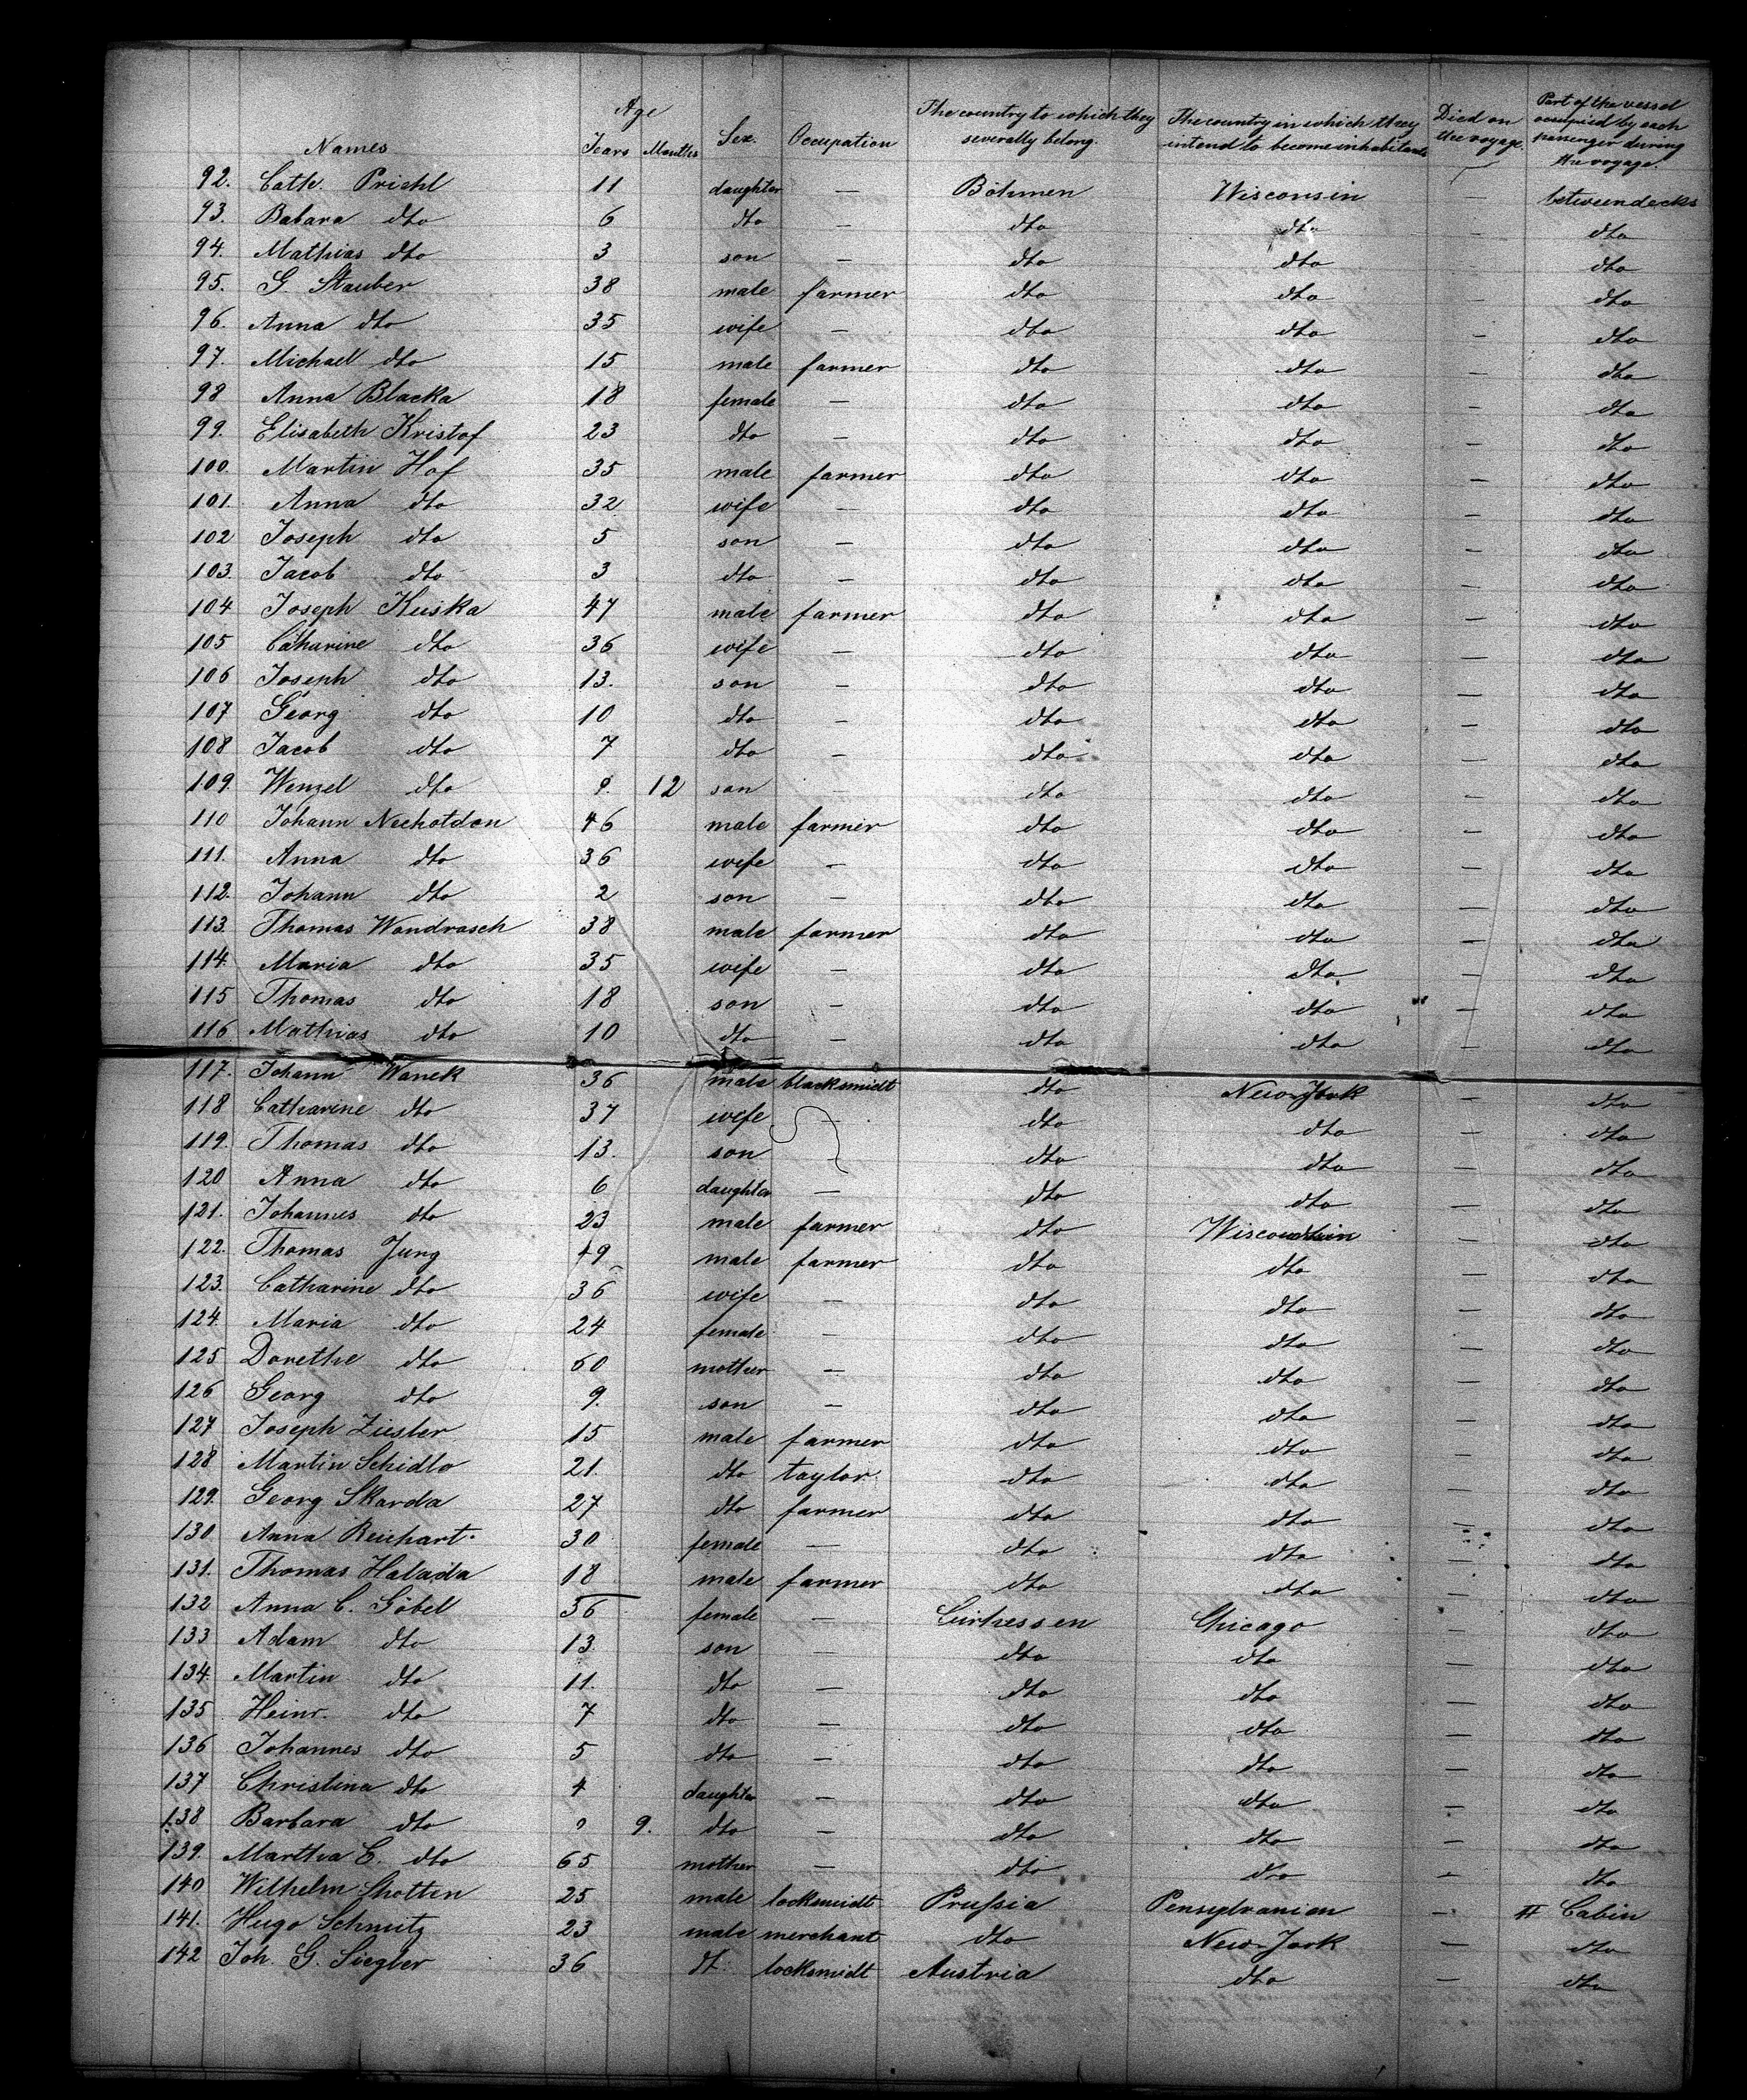 Names Age Years Months Sex. Occupation The country to which they severally belong. The country in which they intend to become inhabitants Died on the voyage. Part of the vessel occupied by each passenger during the voyage.
92. Cath. Prichl 11 daughter — Böhmen Wisconsin — betweendecks
93. Babara dto 6 dto — dto dto — dto
94. Mathias dto 3 son — dto dto — dto
95. G. Stauber 38 male farmer dto dto — dto
96. Anna dto 35 wife — dto dto — dto
97. Michael dto 15 male farmer dto dto — dto
98 Anna Blacka 18 female — dto dto — dto
99. Elisabeth Kristof 23 dto — dto dto — dto
100. Martin Hof 35 male farmer dto dto — dto
101. Anna dto 32 wife — dto dto — dto
102 Joseph dto 5 son — dto dto — dto
103. Jacob dto 3 dto — dto dto — dto
104 Joseph Kuska 47 male farmer dto dto — dto
105 Cathurine dto 36 wife — dto dto — dto
106 Joseph dto 13. son — dto dto — dto
107 Georg dto 10 dto — dto dto — dto
108 Jacob dto 7 dto — dto dto — dto
109. Wenzel dto 12 son — dto dto — dto
110 Johann Necholdon 46 male farmer dto dto — dto
111. Anna dto 36 wife — dto dto — dto
112. Johann dto 2 son — dto dto — dto
113. Thomas Wondrasch 38 male farmer dto dto — dto
114. Maria dto 35 wife — dto dto — dto
115 Thomas dto 18 son — dto dto — dto
116. Mathias dto 10 dto — dto dto — dto
117. Johann Wanek 36 male blacksmidt dto New-York — dto
118 Catharine dto 37 wife — dto dto — dto
119. Thomas dto 13. son dto dto — dto
120 Anna dto 6 daughter — dto dto — dto
121. Johannes dto 23 male farmer dto Wisconsin — dto
122. Thomas Jung 49 male farmer dto dto — dto
123. Catharine dto 36 wife — dto dto — dto
124. Maria dto 24 female — dto dto — dto
125 Dorethe dto 60 mother — dto dto — dto
126 Georg dto 9. son — dto dto — dto
127 Joseph Ziesler 15 male farmer dto dto — dto
128 Martin Schidlo 21. dto taylor dto dto — dto
129. Georg Skarda 27 dto farmer dto dto — dto
130. Anna Reichart. 30 female — dto dto — dto
131. Thomas Halada 18 male farmer dto dto — dto
132 Anna C. Göbel 36 female — Curhessen Chicago — dto
133 Adam dto 13. son — dto dto — dto
134. Martin dto 11. dto — dto dto — dto
135 Heinr. dto 7 dto — dto dto — dto
136 Johannes dto 5 dto — dto dto — dto
137 Christina dto 4 daughter — dto dto — dto
138 Barbara dto 9. dto — dto dto — dto
139. Martha E. dto 65 mother — dto dto — dto
140 Wilhelm Shotten 25 male locksmidt Prußia Pensylvanien — II Cabin
141. Hugo Schmitz 23 male merchant dto New-York — dto
142 Joh. G. Siegler 36 dt. locksmidt Austria dto — dto